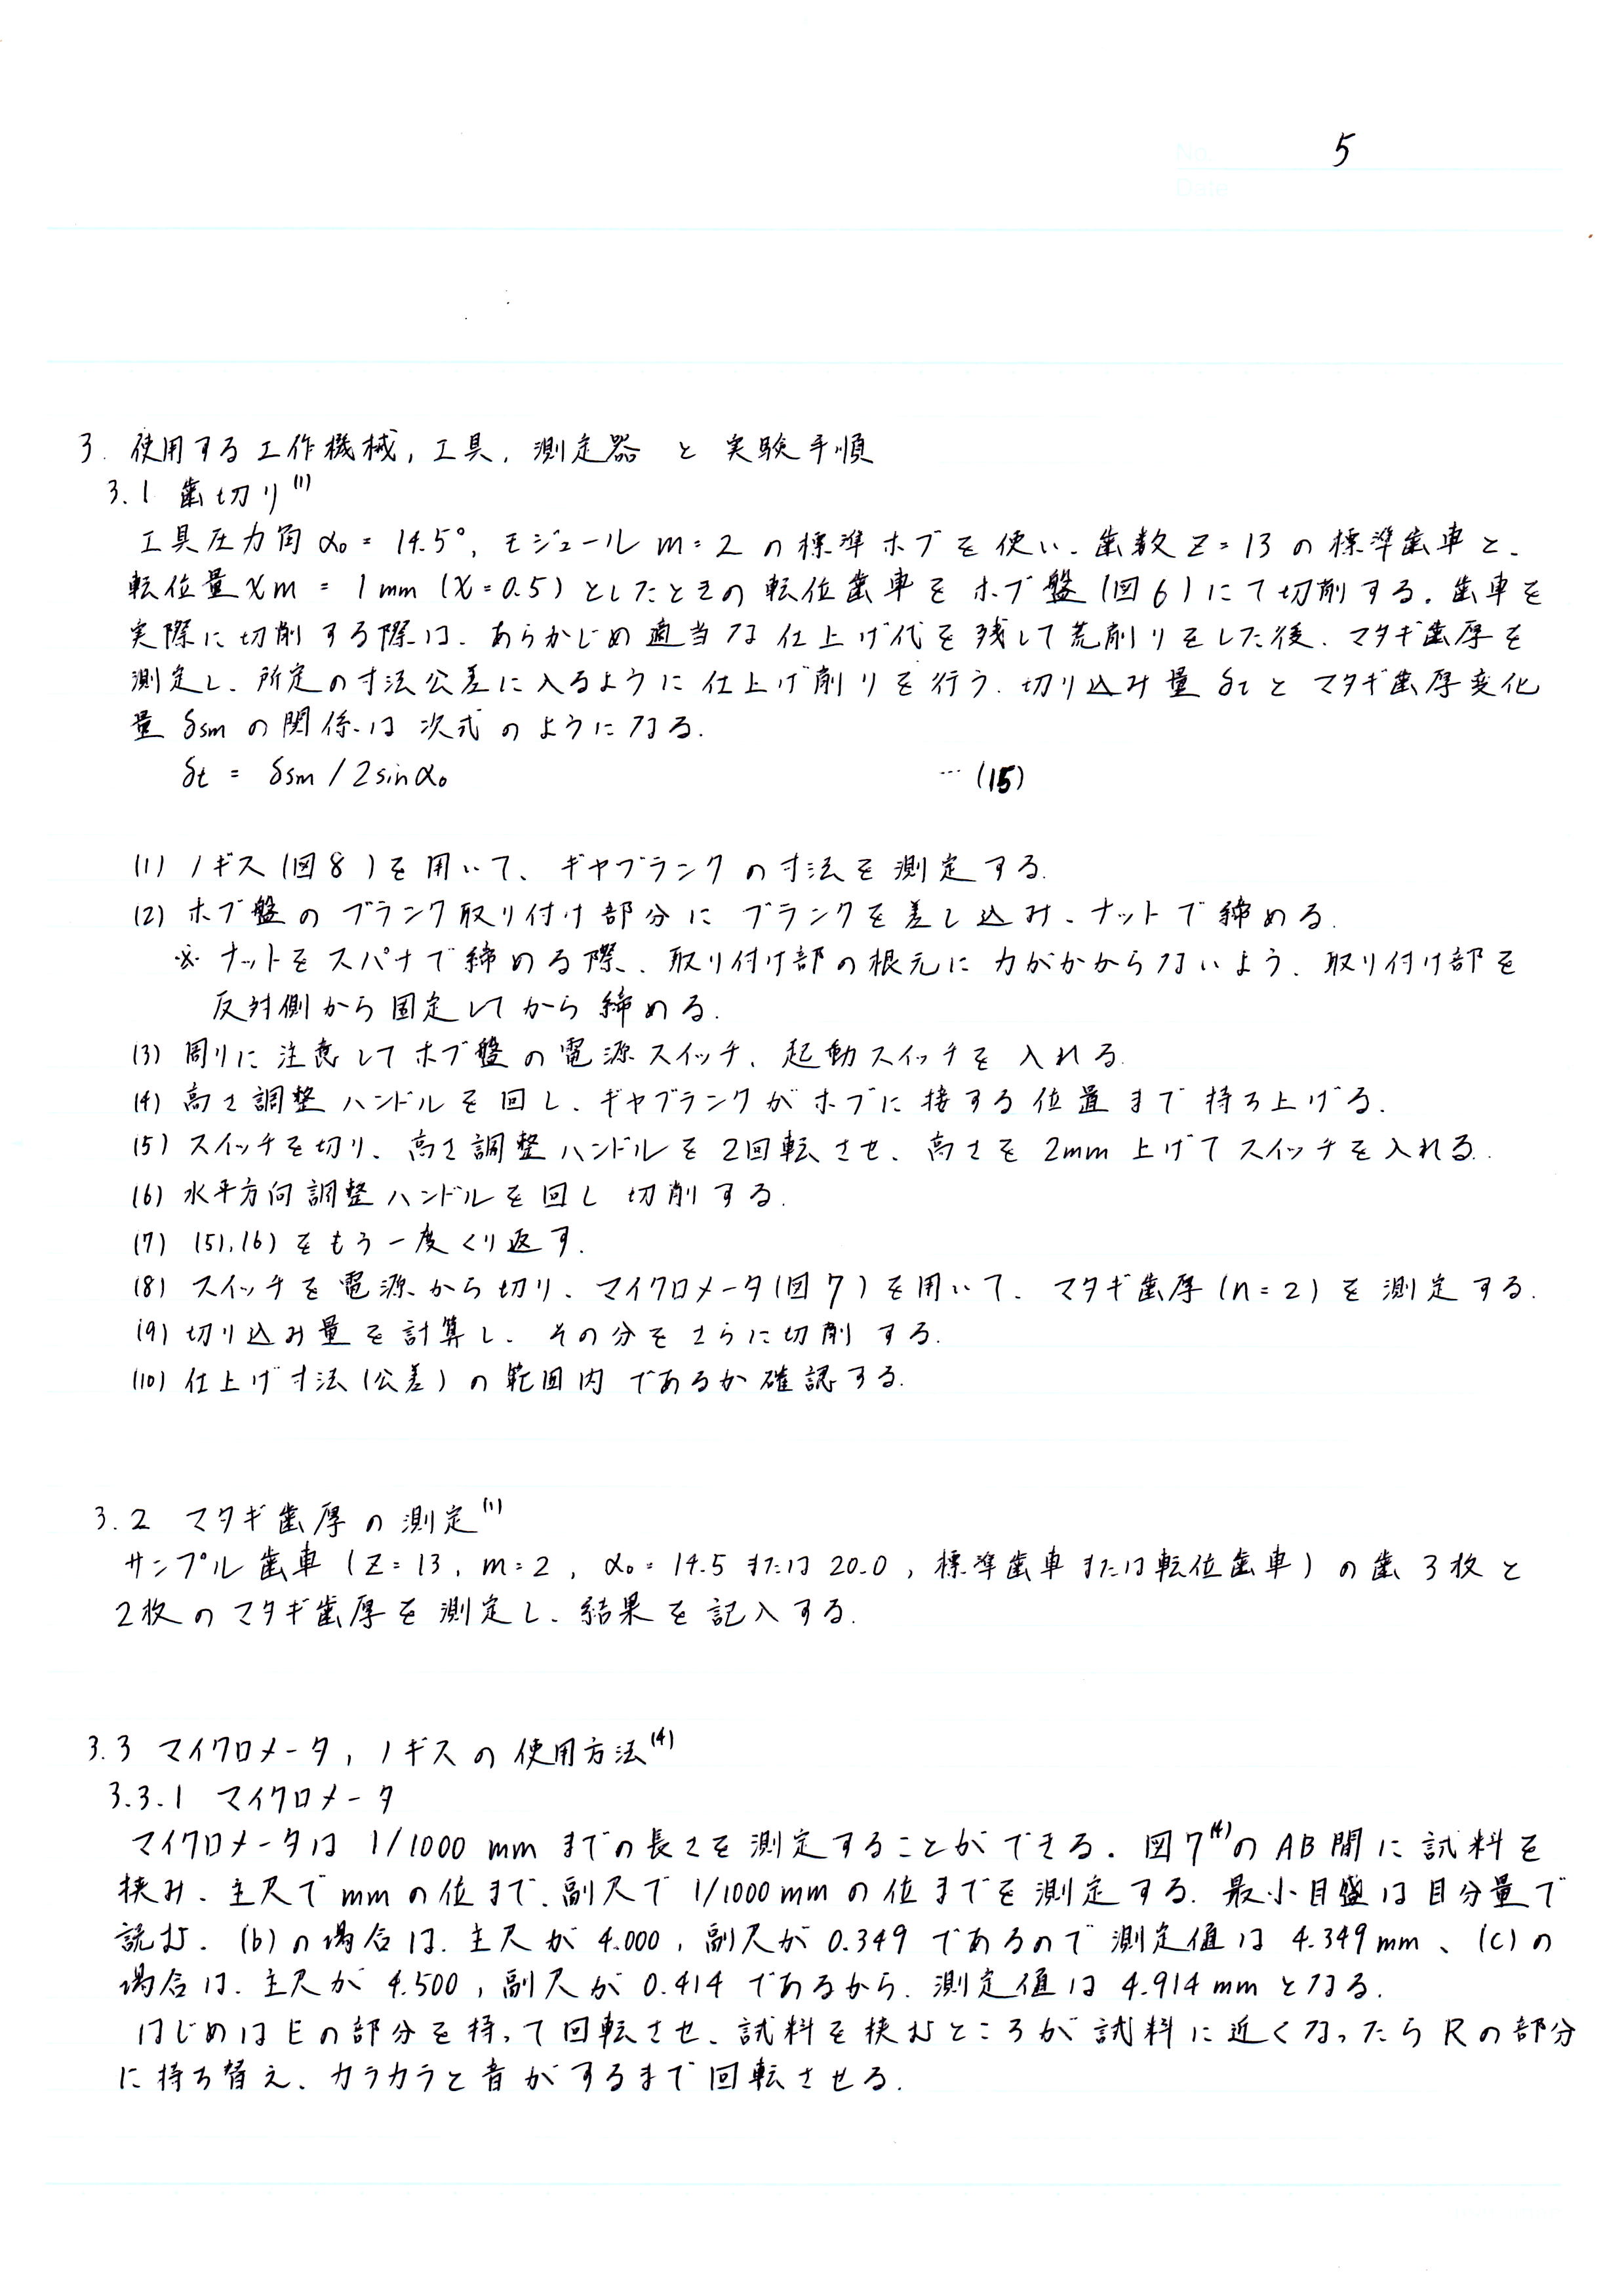 No. 5
Date
3. 使用する工作機械, 工具, 測定器 と 実験手順
3.1 歯切り(1)
工具圧力角 α₀ = 14.5°, モジュール m = 2 の標準ホブを使い、歯数 Z = 13 の標準歯車と、
転位量 xm = 1 mm (x = 0.5) としたときの転位歯車をホブ盤(図6)にて切削する. 歯車を
実際に切削する際は、あらかじめ適当な仕上げ代を残して荒削りをした後、マタギ歯厚を
測定し、所定の寸法公差に入るように仕上げ削りを行う. 切り込み量 δt と マタギ歯厚変化
量 δsm の関係は次式のようになる.
δt = δsm / 2sinα₀ … (15)
(1) ノギス(図8)を用いて、ギヤブランクの寸法を測定する.
(2) ホブ盤のブランク取り付け部分にブランクを差し込み、ナットで締める.
※ ナットをスパナで締める際、取り付け部の根元に力がかからないよう、取り付け部を
反対側から固定してから締める.
(3) 周りに注意してホブ盤の電源スイッチ、起動スイッチを入れる.
(4) 高さ調整ハンドルを回し、ギヤブランクがホブに接する位置まで持ち上げる.
(5) スイッチを切り、高さ調整ハンドルを2回転させ、高さを2mm上げてスイッチを入れる.
(6) 水平方向調整ハンドルを回し切削する.
(7) (5),(6)をもう一度くり返す.
(8) スイッチを電源から切り、マイクロメータ(図7)を用いて、マタギ歯厚(n=2)を測定する.
(9) 切り込み量を計算し、その分をさらに切削する.
(10) 仕上げ寸法(公差)の範囲内であるか確認する.
3.2 マタギ歯厚の測定(1)
サンプル歯車 (Z=13, m=2, α₀=14.5 または 20.0, 標準歯車または転位歯車) の歯3枚と
2枚のマタギ歯厚を測定し、結果を記入する.
3.3 マイクロメータ, ノギスの使用方法(4)
3.3.1 マイクロメータ
マイクロメータは 1/1000 mm までの長さを測定することができる. 図7(4)のAB間に試料を
挟み、主尺でmmの位まで、副尺で1/1000mmの位までを測定する. 最小目盛は目分量で
読む. (b)の場合は、主尺が4.000, 副尺が0.349であるので測定値は4.349mm、(c)の
場合は、主尺が4.500, 副尺が0.414であるから、測定値は4.914mmとなる.
はじめはEの部分を持って回転させ、試料を挟むところが試料に近くなったらRの部分
に持ち替え、カラカラと音がするまで回転させる.